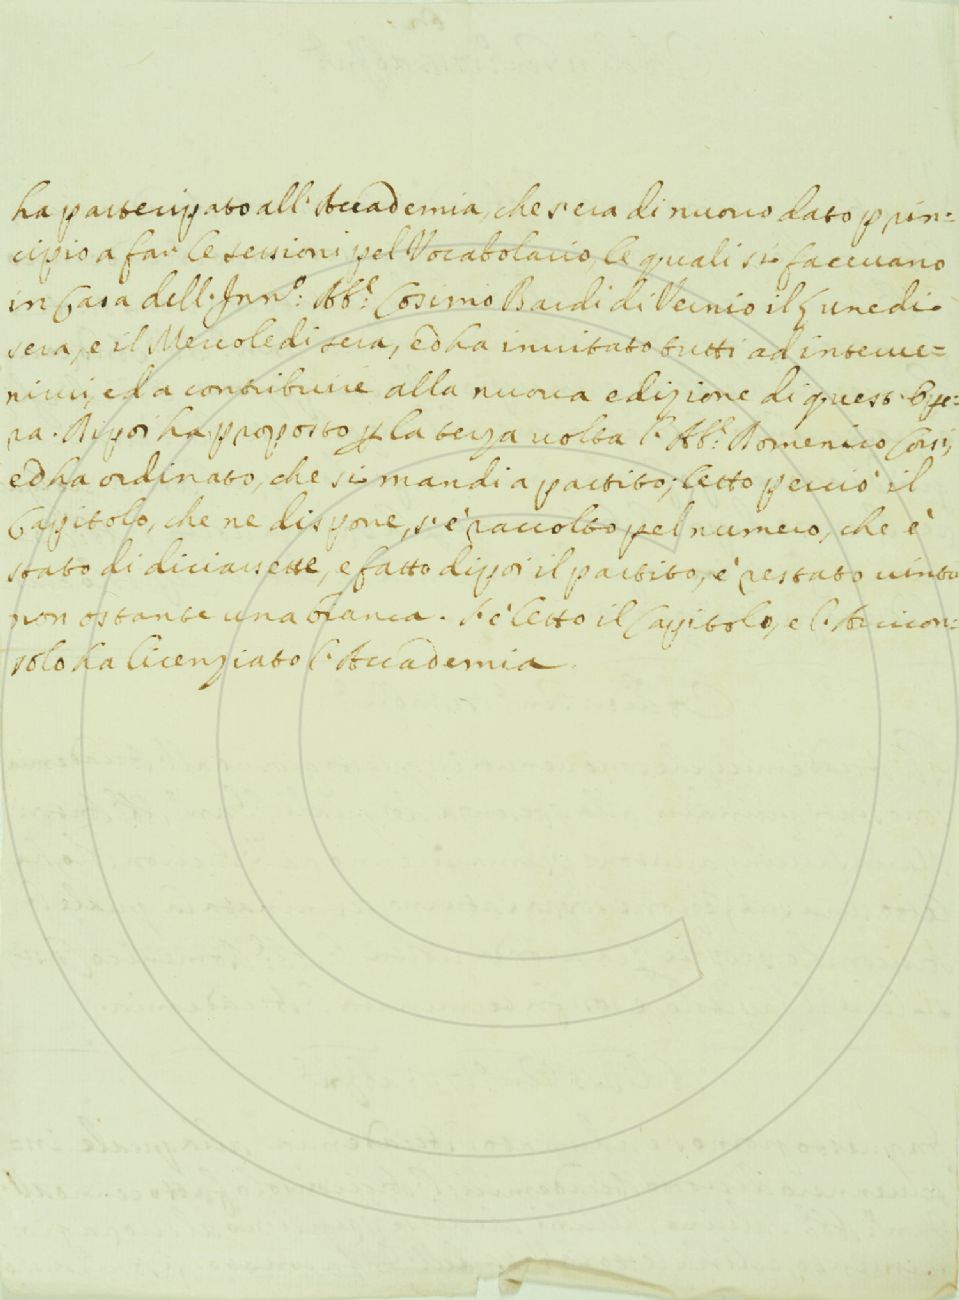 ha partecipato all'Accademia, che s'era di nuovo dato prin=
cipio a far le sessioni pel Vocabolario, le quali si facevano
in Casa dell'Inn.º: Ab.e: Cosimo Bardi di Vernio il Lunedi
sera, e il Mercoledi sera, ed ha invitato tutti ad interve=
nirvi, ed a contribuire alla nuova edizione di quest'Ope=
ra. Dipoi ha proposto p la terza volta l'Ab.e: Domenico Corsi,
ed ha ordinato, che si mandi a partito; letto perciò il
Capitolo, che ne dispone, s'è raccolto pel numero, che è
stato di diciassette, e fatto dipoi il partito, è restato vinto
non ostante una bianca. S'è letto il Capitolo, e l'Arcicon=
solo ha licenziato l'Accademia.